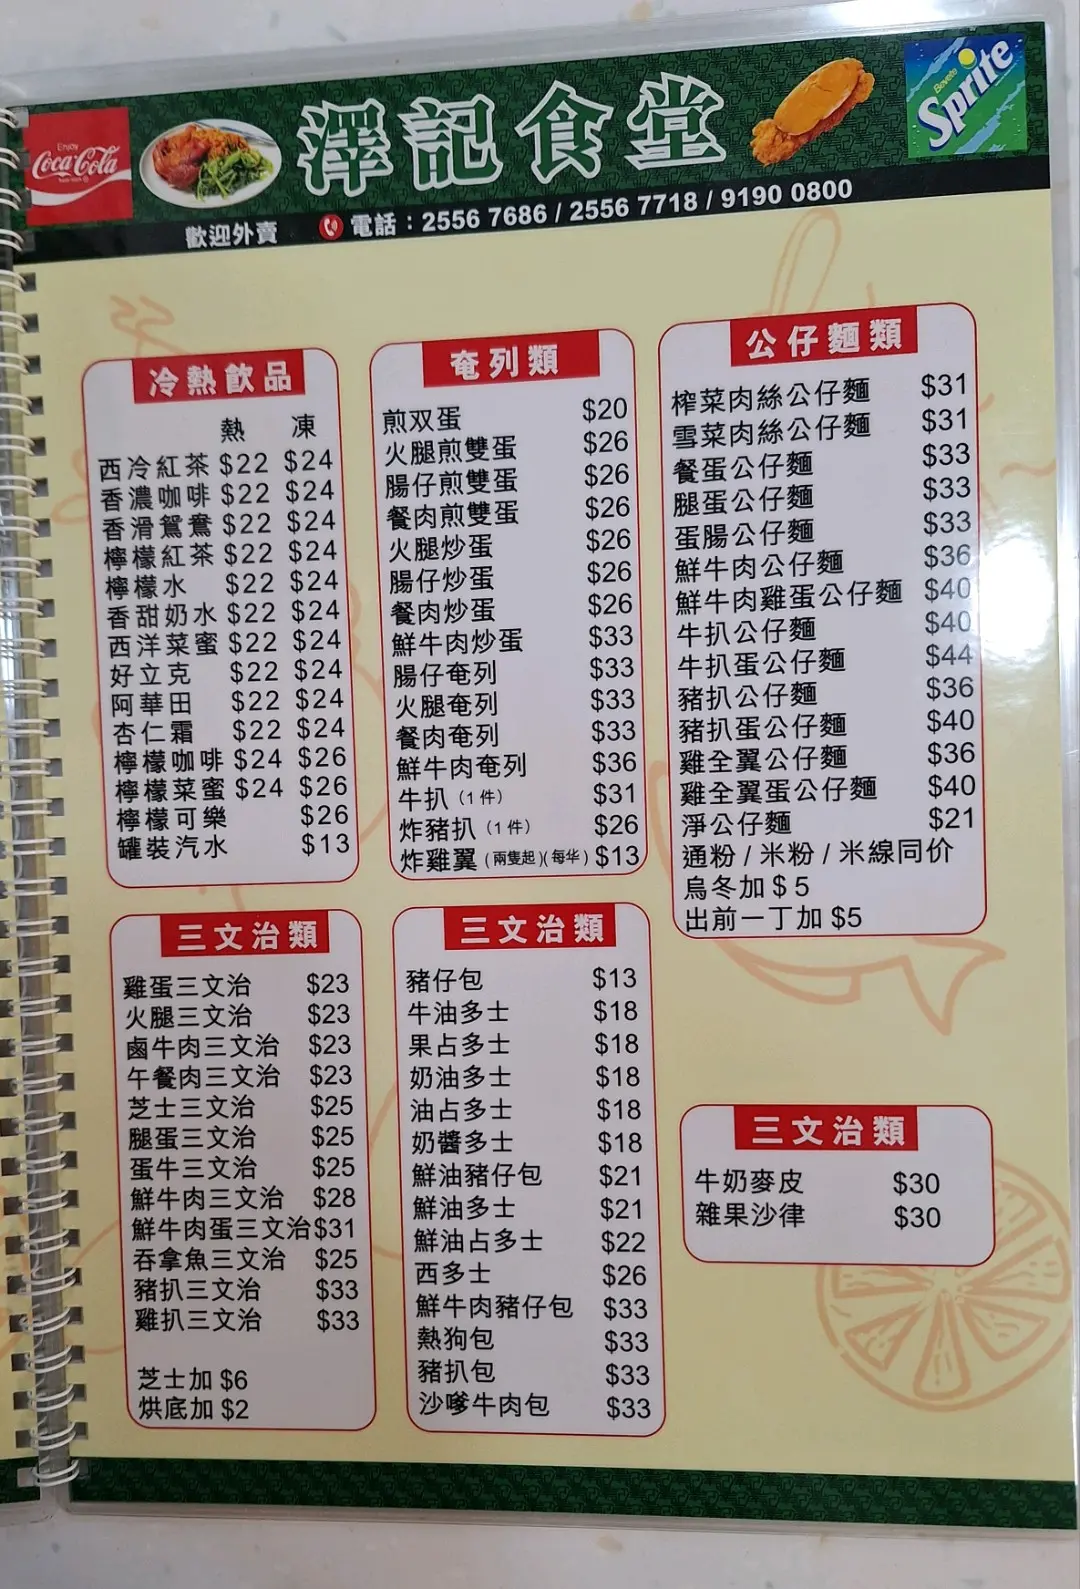 Enjoy
Coca-Cola
澤記食堂
Sprite
歡迎外賣 電話：2556 7686 / 2556 7718 / 9190 0800
冷熱飲品
熱 凍
西冷紅茶 $22 $24
香濃咖啡 $22 $24
香滑鴛鴦 $22 $24
檸檬紅茶 $22 $24
檸檬水 $22 $24
香甜奶水 $22 $24
西洋菜蜜 $22 $24
好立克 $22 $24
阿華田 $22 $24
杏仁霜 $22 $24
檸檬咖啡 $24 $26
檸檬菜蜜 $24 $26
檸檬可樂 $26
罐裝汽水 $13
奄列類
煎双蛋 $20
火腿煎雙蛋 $26
腸仔煎雙蛋 $26
餐肉煎雙蛋 $26
火腿炒蛋 $26
腸仔炒蛋 $26
餐肉炒蛋 $26
鮮牛肉炒蛋 $33
腸仔奄列 $33
火腿奄列 $33
餐肉奄列 $33
鮮牛肉奄列 $36
牛扒（1件） $31
炸豬扒（1件） $26
炸雞翼（兩隻起）（每华） $13
公仔麵類
榨菜肉絲公仔麵 $31
雪菜肉絲公仔麵 $31
餐蛋公仔麵 $33
腿蛋公仔麵 $33
蛋腸公仔麵 $33
鮮牛肉公仔麵 $36
鮮牛肉雞蛋公仔麵 $40
牛扒公仔麵 $40
牛扒蛋公仔麵 $44
豬扒公仔麵 $36
豬扒蛋公仔麵 $40
雞全翼公仔麵 $36
雞全翼蛋公仔麵 $40
淨公仔麵 $21
通粉 / 米粉 / 米線同价
烏冬加 $ 5
出前一丁加 $5
三文治類
雞蛋三文治 $23
火腿三文治 $23
鹵牛肉三文治 $23
午餐肉三文治 $23
芝士三文治 $25
腿蛋三文治 $25
蛋牛三文治 $25
鮮牛肉三文治 $28
鮮牛肉蛋三文治 $31
吞拿魚三文治 $25
豬扒三文治 $33
雞扒三文治 $33
芝士加 $6
烘底加 $2
三文治類
豬仔包 $13
牛油多士 $18
果占多士 $18
奶油多士 $18
油占多士 $18
奶醬多士 $18
鮮油豬仔包 $21
鮮油多士 $21
鮮油占多士 $22
西多士 $26
鮮牛肉豬仔包 $33
熱狗包 $33
豬扒包 $33
沙嗲牛肉包 $33
三文治類
牛奶麥皮 $30
雜果沙律 $30